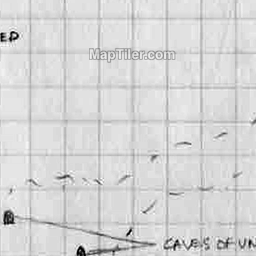 ED
MapTiler.com
CAVES OF UN